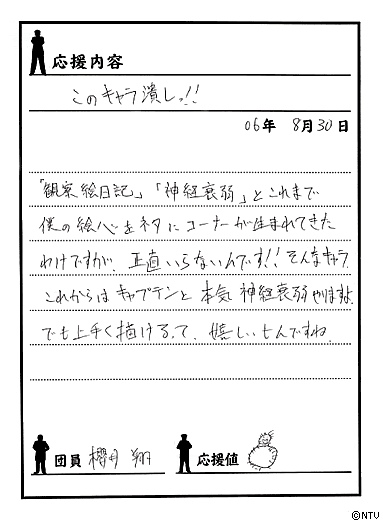 応援内容
このキャラ潰しっ!!
06年 8月30日
「観察絵日記」「神経衰弱」とこれまで
僕の絵心をネタにコーナーが生まれてきた
わけですが、正直いらないんです!!そんなキャラ。
これからはキャプテンと本気神経衰弱やりますよ。
でも上手く描けるって、嬉しいもんですね。
団員 櫻井 翔 応援値
©NTV